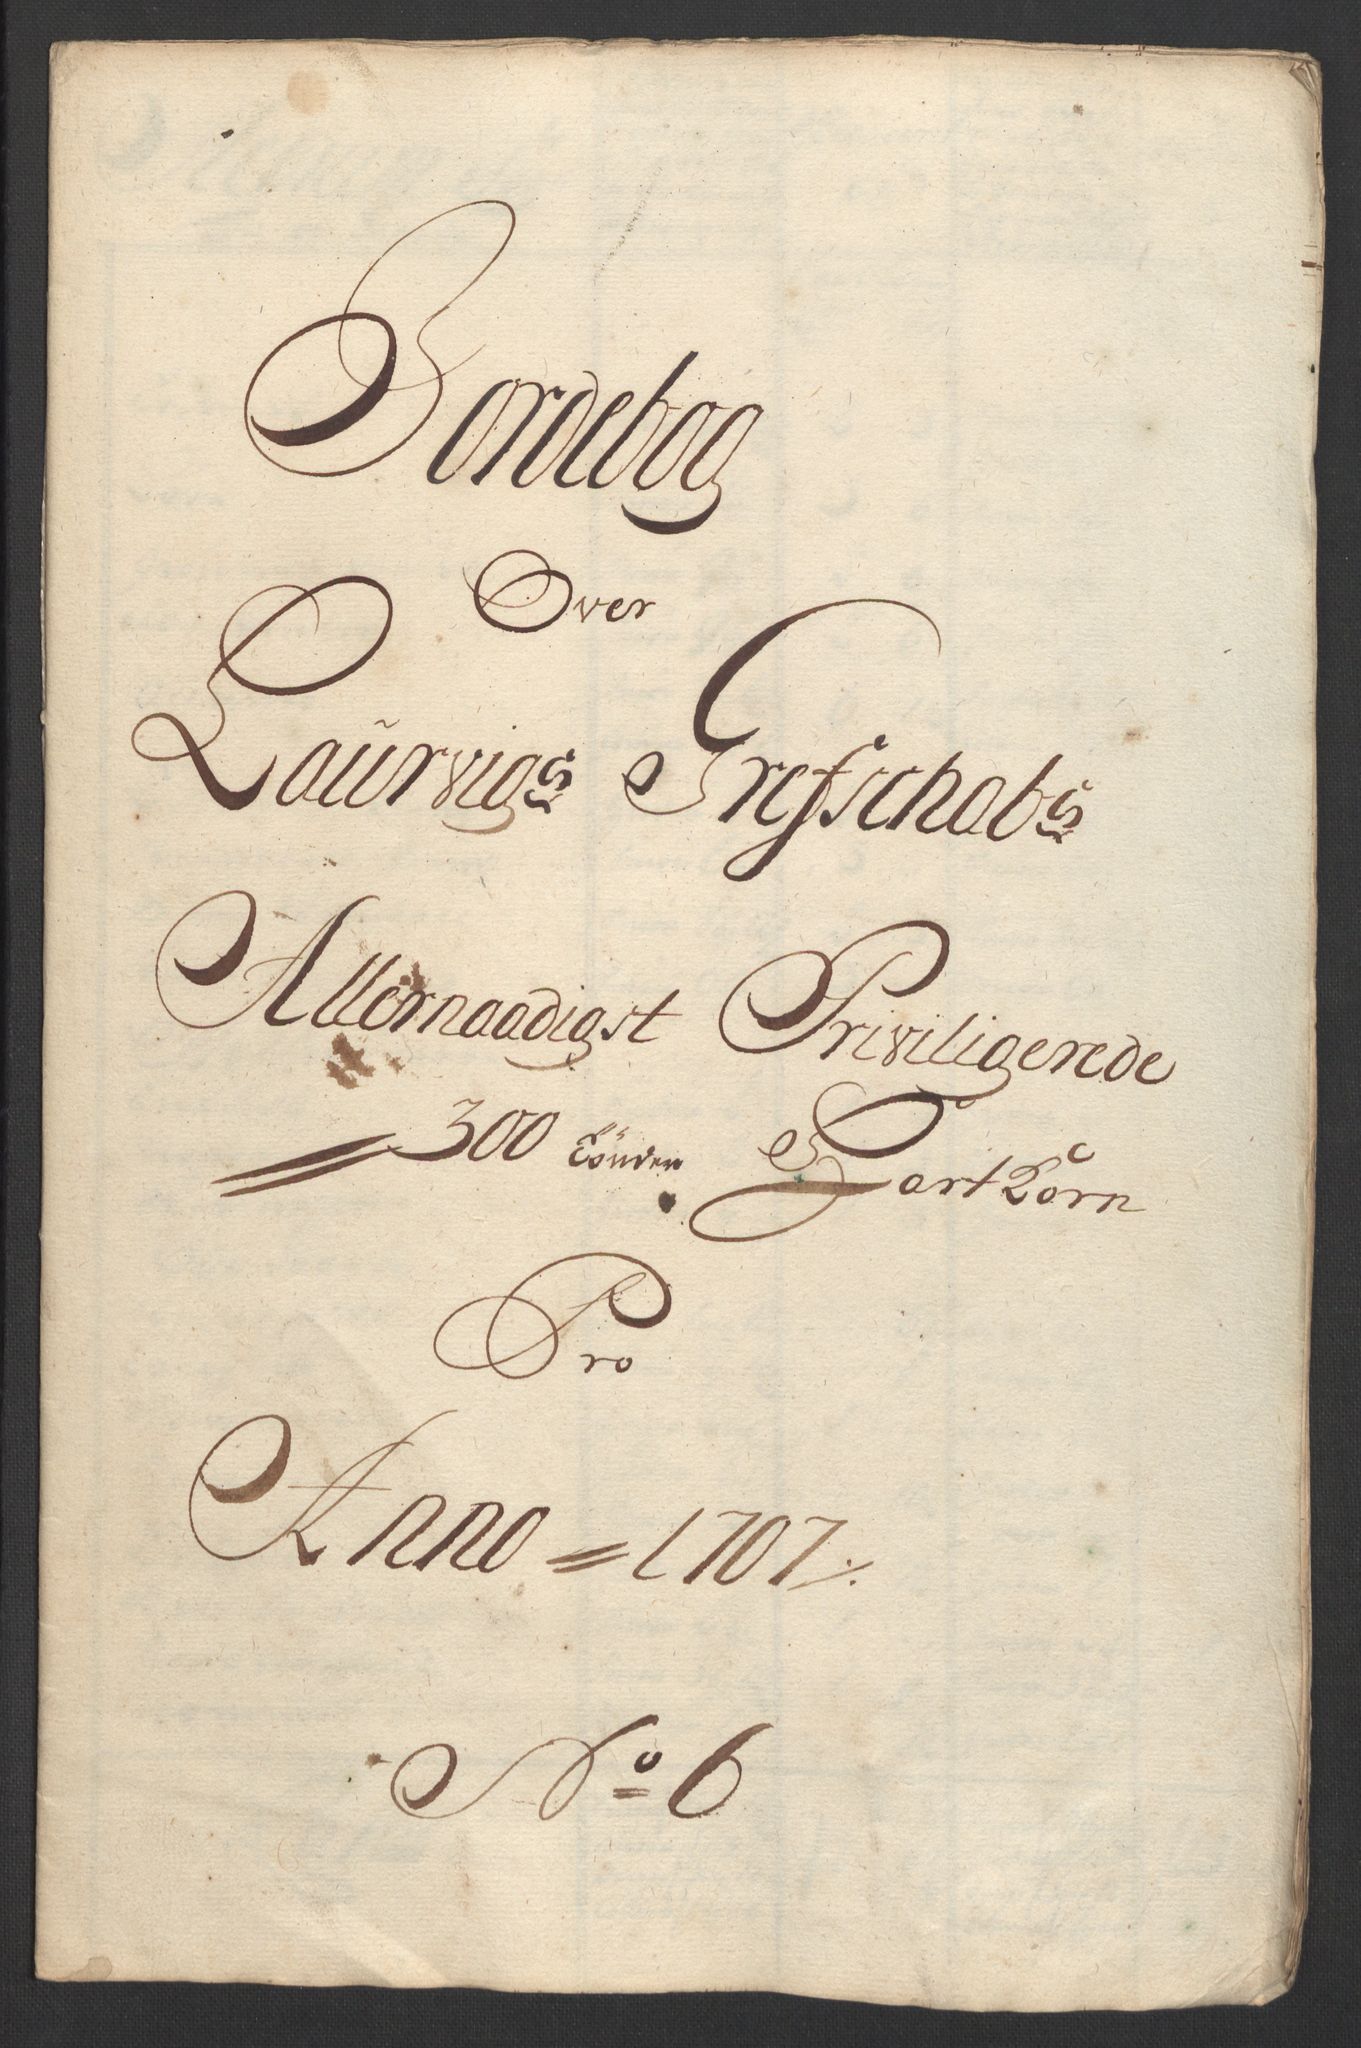 Jordebog
Over
Laŭrvigs Grefschabs
Allernaadigst Priviligerede
300 Tönder Hart Korn
Pro
Anno = 1707 /.
No 6